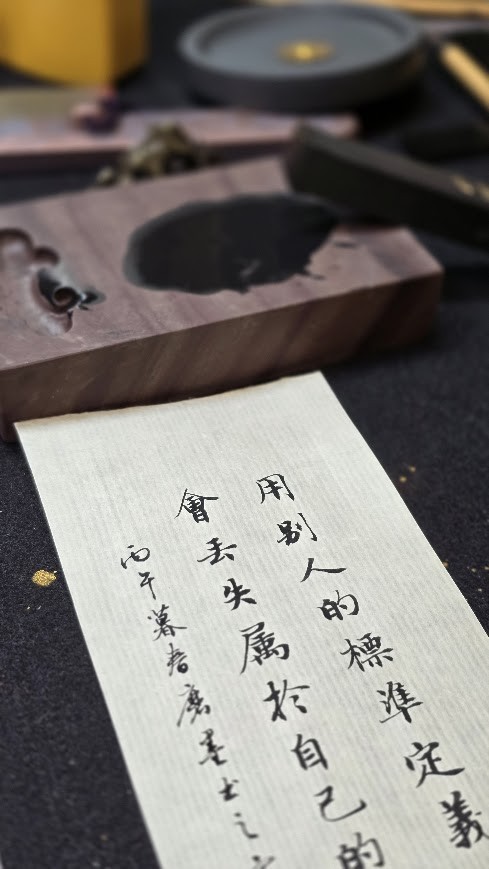 用别人的標準定義
會丟失属於自己的
丙午暮春磨墨书之